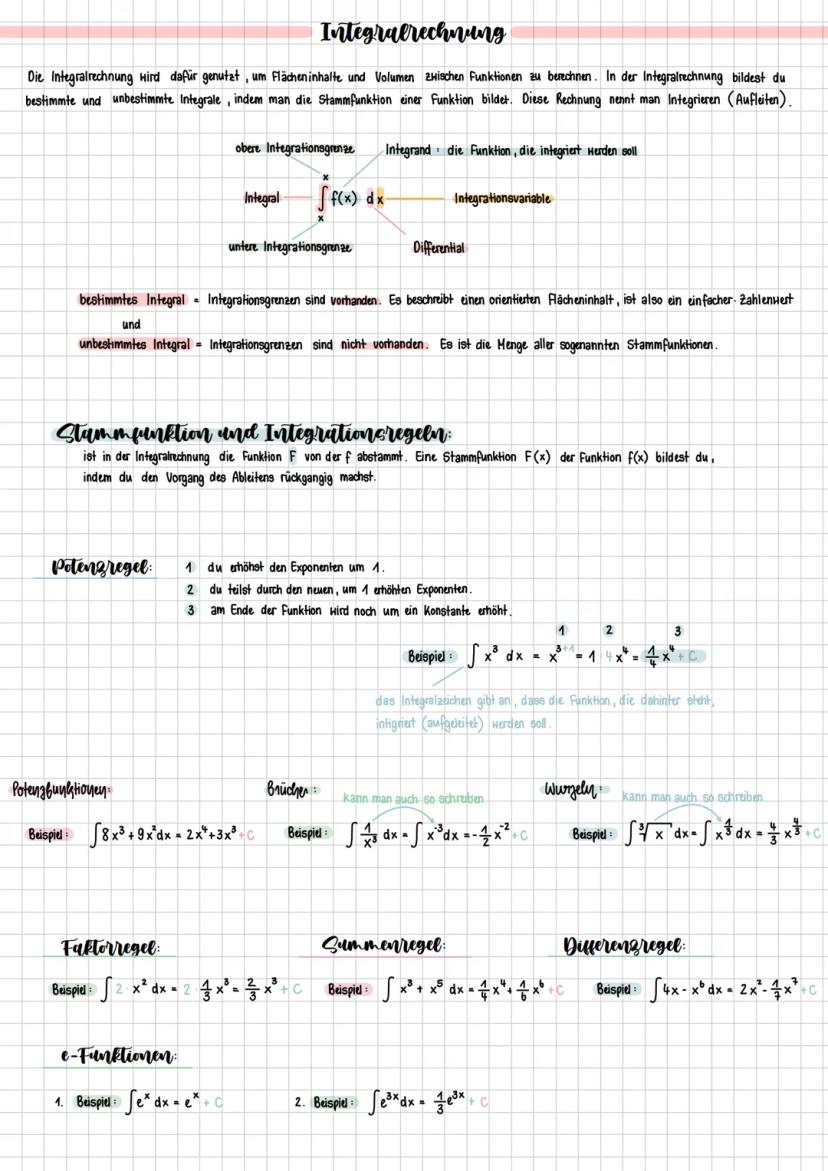 Integralrechnung
Die Integralrechnung wird dafür genutzt, um Flächeninhalte und Volumen zwischen Funktionen zu berechnen. In der Integralrechnung bildest du
bestimmte und unbestimmte Integrale, indem man die Stammfunktion einer Funktion bildet. Diese Rechnung nennt man Integrieren (Aufleiten).
obere Integrationsgrenze Integrand: die Funktion, die integriert werden soll
x
Integral ∫ f(x) dx Integrationsvariable
x
untere Integrationsgrenze Differential
bestimmtes Integral = Integrationsgrenzen sind vorhanden. Es beschreibt einen orientierten Flächeninhalt, ist also ein einfacher Zahlenwert
und
unbestimmtes Integral = Integrationsgrenzen sind nicht vorhanden. Es ist die Menge aller sogenannten Stammfunktionen.
Stammfunktion und Integrationsregeln:
ist in der Integralrechnung die Funktion F von der f abstammt. Eine Stammfunktion F(x) der Funktion f(x) bildest du,
indem du den Vorgang des Ableitens rückgangig machst.
Potenzregel: 1 du erhöhst den Exponenten um 1.
2 du teilst durch den neuen, um 1 erhöhten Exponenten.
3 am Ende der Funktion wird noch um ein Konstante erhöht.
1 2 3
Beispiel: ∫ x³ dx = x³⁺¹ = 1 4x⁴ = 1/4 x⁴ + C
das Integralzeichen gibt an, dass die Funktion, die dahinter steht,
intigriert (aufgeleitet) werden soll.
Potenzfunktionen: Brüche: Wurzeln:
kann man auch so schreiben kann man auch so schreiben
Beispiel: ∫ 8x³ + 9x²dx = 2x⁴ + 3x³ + C Beispiel: ∫ 1/x³ dx = ∫ x⁻³dx = -1/2 x⁻² + C Beispiel: ∫ ³√x dx = ∫ x^(1/3) dx = 4/3 x^(4/3) + C
Faktorregel: Summenregel: Differenzregel:
Beispiel: ∫ 2·x² dx = 2·1/3 x³ = 2/3 x³ + C Beispiel: ∫ x³ + x⁵ dx = 1/4 x⁴ + 1/6 x⁶ + C Beispiel: ∫ 4x - x⁶ dx = 2x² - 1/7 x⁷ + C
e-Funktionen:
1. Beispiel: ∫ eˣ dx = eˣ + C 2. Beispiel: ∫ e³ˣdx = 1/3 e³ˣ + C